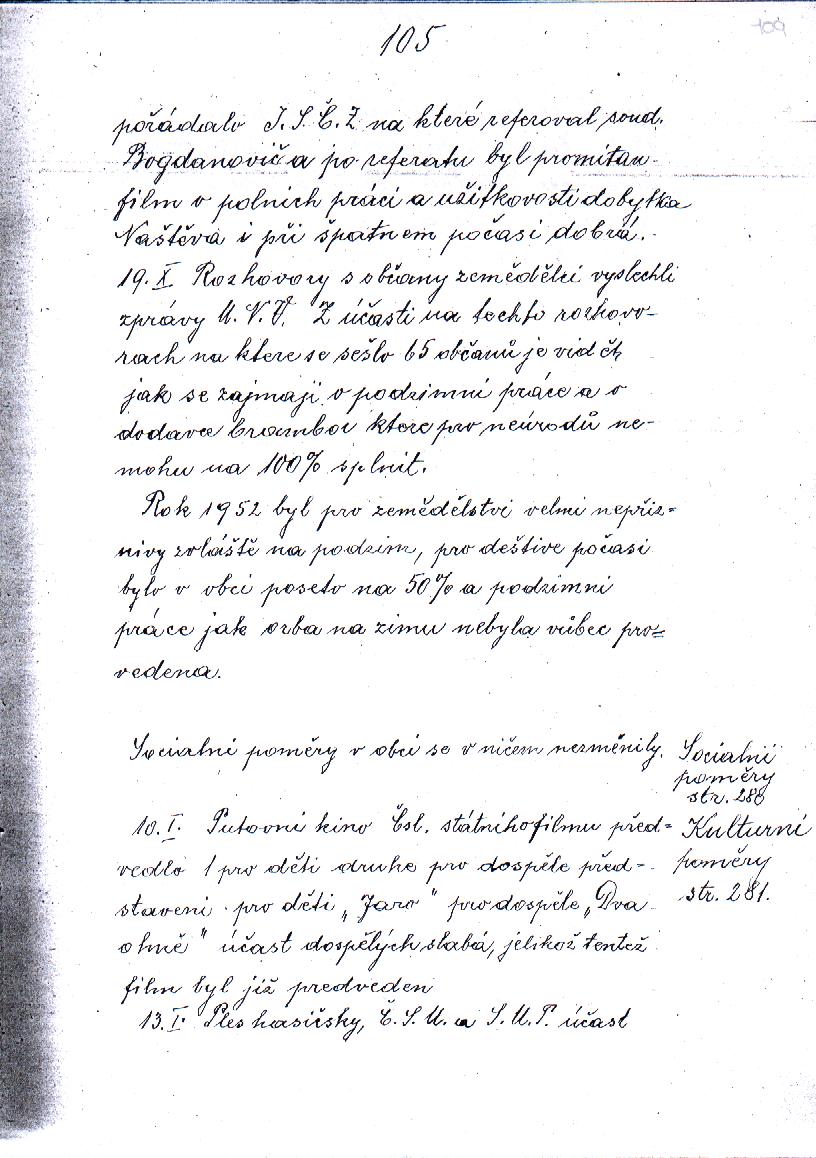 105
109
pořádalo J.S.Č.Ž na které referoval soud.
Bogdanovič a po referatu byl promítan
film o polních práci a užitkovosti dobytka
Naštěva i při špatnem počasi dobrá.
19. X Rozhovory s občany zemědělci vyslechli
zprávy M.N.V. Z účasti na techto rozhovo-
rach na ktere se sešlo 65 občanů je viděti
jak se zajmaji o podzimni práce a o
dodavce brambor ktere pro neúrodů ne-
mohu na 100% splnit.
Rok 1952 byl pro zemědělstvi velmi nepříz=
nivy zvláště na podzim, pro deštive počasi
bylo v obci poseto na 50% a podzimni
práce jak orba na zimu nebyla vůbec pro=
vedena.
Socialni poměry v obci se v ničem nezměnily.
Socialni
poměry
str. 280
10. I. Putovni kino Čsl. státniho filmu před=
vedlo 1 pro děti druhe pro dospěle před=
staveni. pro děti „Jaro" pro dospěle „Dva
ohně" účast dospělých slabá, jelikož tentež
film byl již předveden
Kulturni
poměry
str. 281.
13. I. Ples hasičsky, Č.S.M. a S.M.P. účast